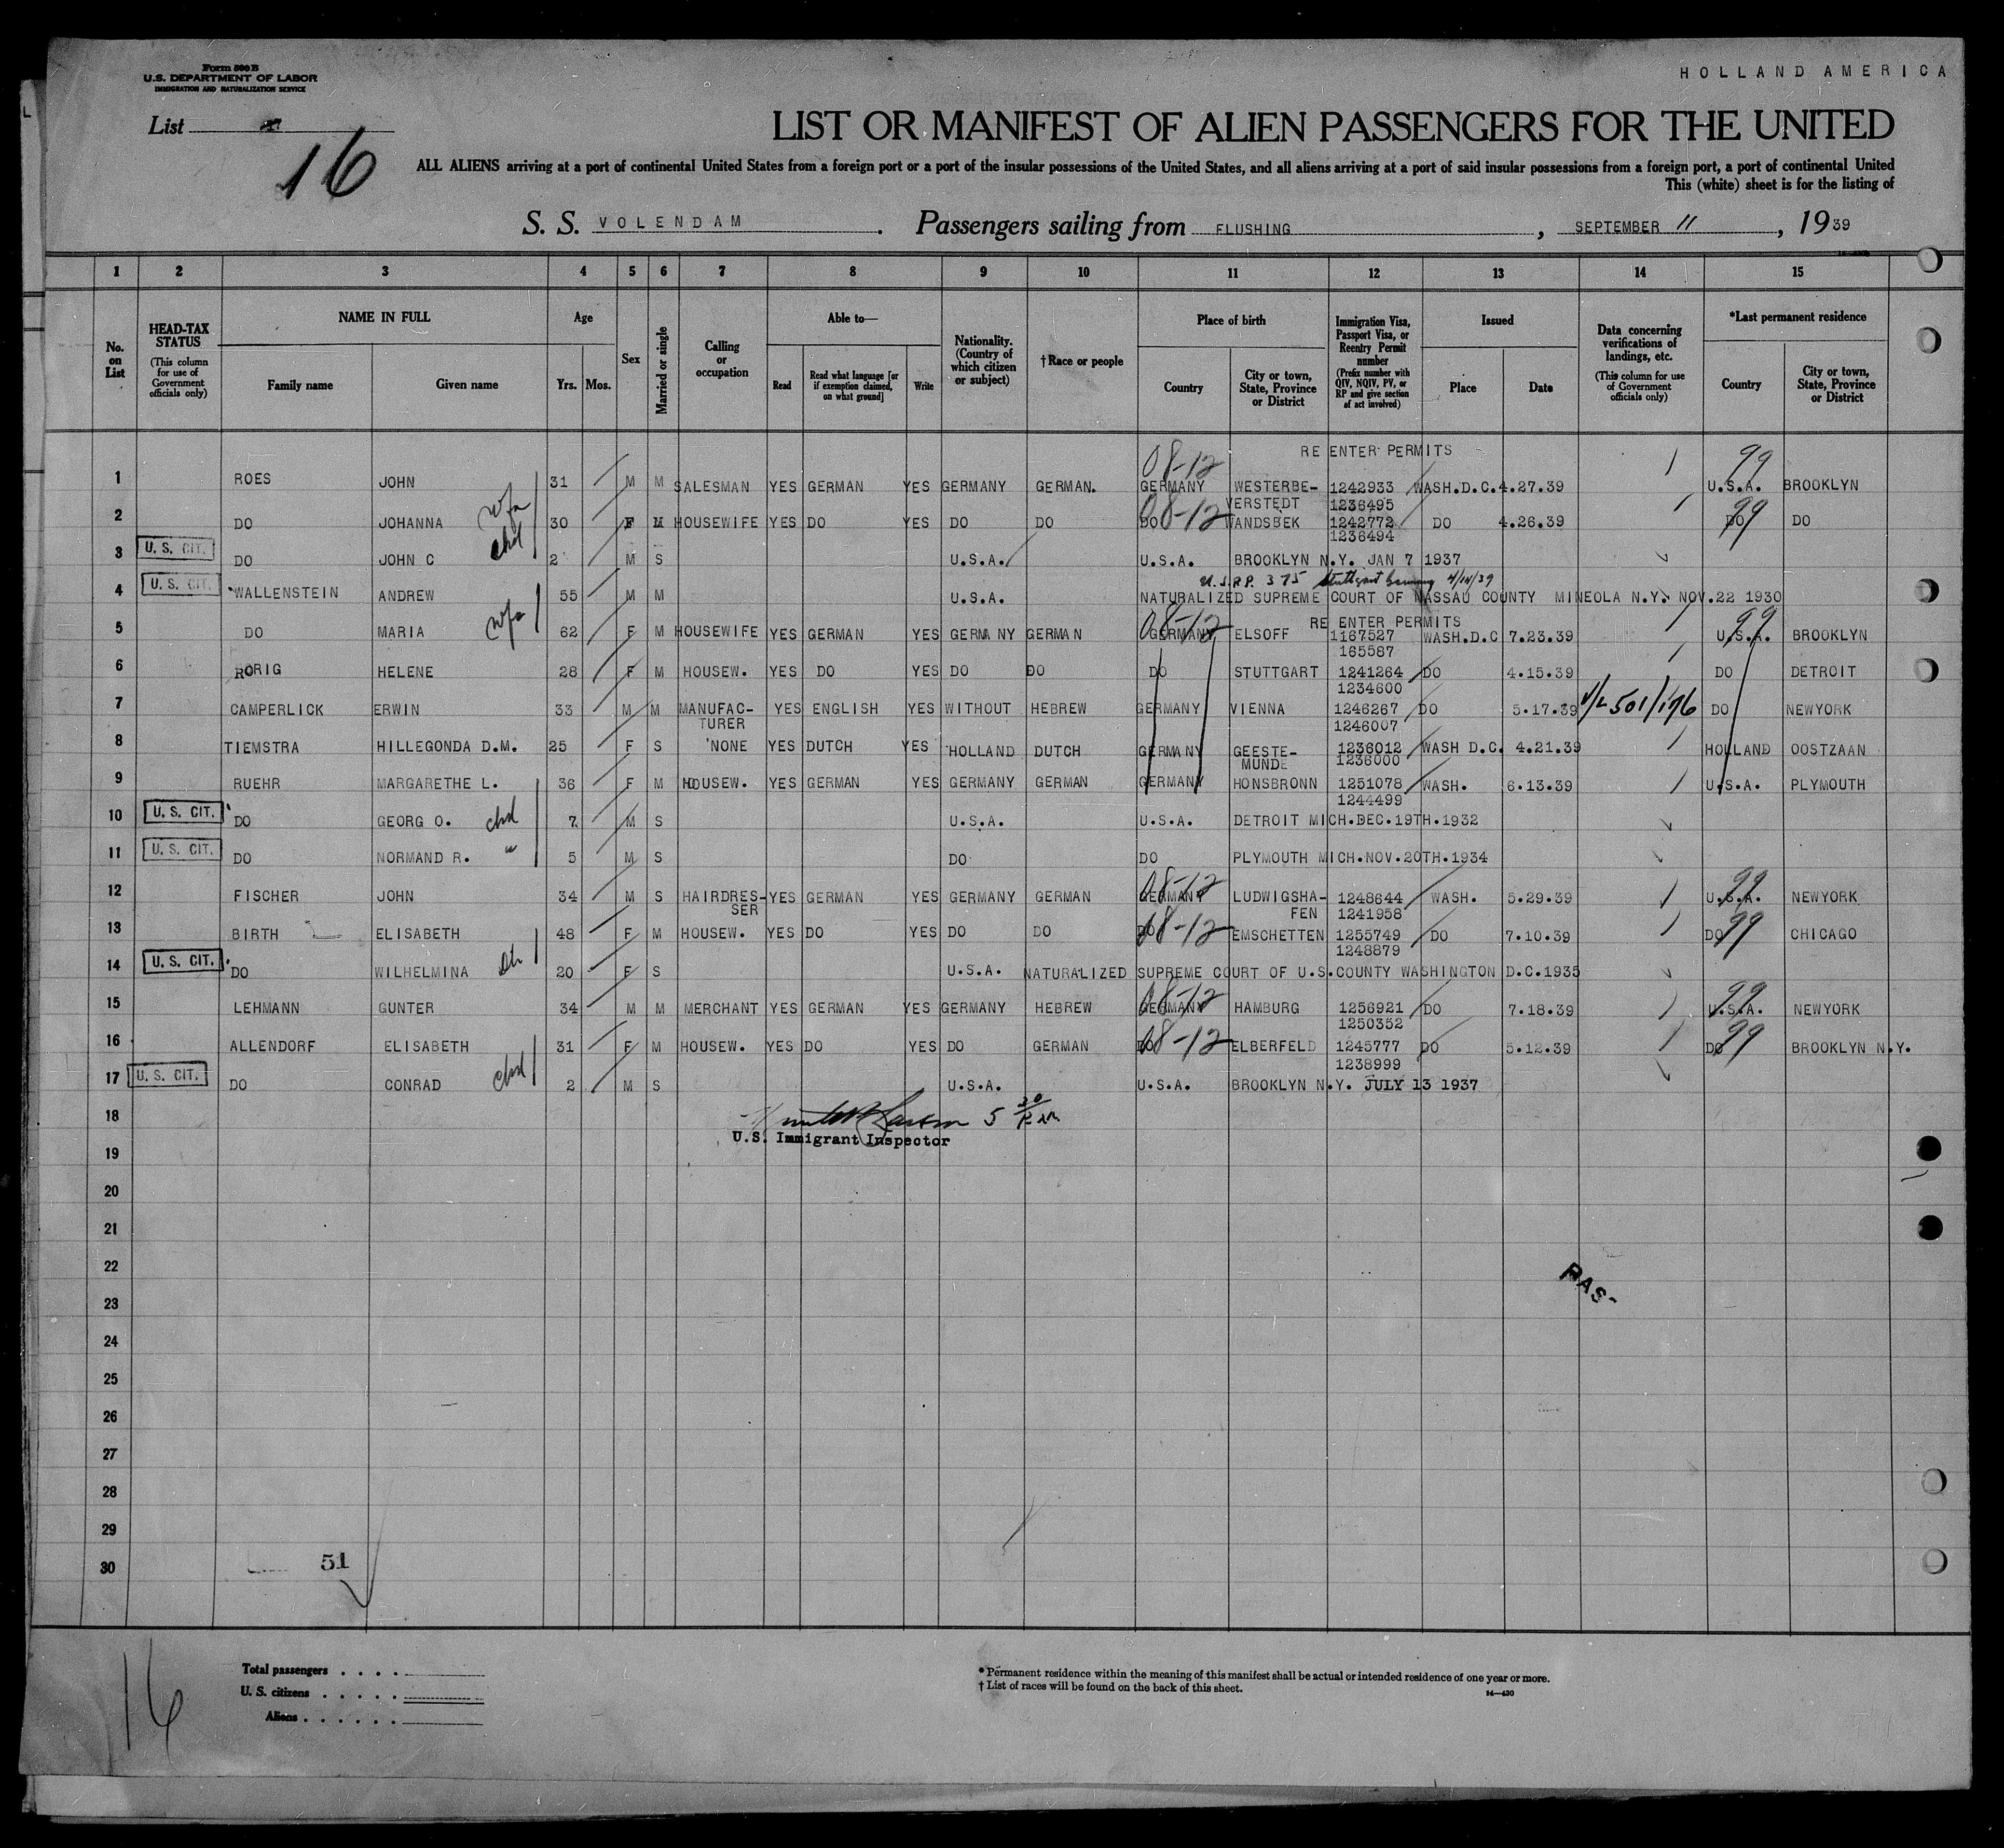 Form 500 B
U.S. DEPARTMENT OF LABOR
IMMIGRATION AND NATURALIZATION SERVICE
HOLLAND AMERICA
List
16
LIST OR MANIFEST OF ALIEN PASSENGERS FOR THE UNITED
ALL ALIENS arriving at a port of continental United States from a foreign port or a port of the insular possessions of the United States, and all aliens arriving at a port of said insular possessions from a foreign port, a port of continental United
This (white) sheet is for the listing of
S. S. VOLENDAM . Passengers sailing from FLUSHING , SEPTEMBER 11 , 1939
1 2 3 4 5 6 7 8 9 10 11 12 13 14 15
No. on List
HEAD-TAX STATUS (This column for use of Government officials only)
NAME IN FULL Family name Given name
Age Yrs. Mos.
Sex
Married or single
Calling or occupation
Able to— Read Read what language [or if exemption claimed, on what ground] Write
Nationality. (Country of which citizen or subject)
†Race or people
Place of birth Country City or town, State, Province or District
Immigration Visa, Passport Visa, or Reentry Permit number (Prefix number with QIV, NQIV, PV, or RP and give section of act involved)
Issued Place Date
Data concerning verifications of landings, etc. (This column for use of Government officials only)
*Last permanent residence Country City or town, State, Province or District
RE ENTER PERMITS
08-12 99
1 ROES JOHN 31 M M SALESMAN YES GERMAN YES GERMANY GERMAN. GERMANY WESTERBE- 1242933 WASH.D.C. 4.27.39 U.S.A. BROOKLYN
VERSTEDT 1236495
2 DO JOHANNA wfe 30 F M HOUSEWIFE YES DO YES DO DO DO 08-12 WANDSBEK 1242772 DO 4.26.39 DO 99 DO
1236494
3 U. S. CIT. DO JOHN C chd 2 M S U.S.A. U.S.A. BROOKLYN N.Y. JAN 7 1937
U.S.P.P. 375 Stuttgart Germany 4/14/39
4 U. S. CIT. WALLENSTEIN ANDREW 55 M M U.S.A. NATURALIZED SUPREME COURT OF NASSAU COUNTY MINEOLA N.Y. NOV.22 1930
RE ENTER PERMITS
5 DO MARIA wfe 62 F M HOUSEWIFE YES GERMAN YES GERMANY GERMAN 08-12 GERMANY ELSOFF 1167527 WASH.D.C 7.23.39 99 U.S.A. BROOKLYN
165587
6 RORIG HELENE 28 F M HOUSEW. YES DO YES DO DO DO STUTTGART 1241264 DO 4.15.39 DO DETROIT
1234600
7 CAMPERLICK ERWIN 33 M M MANUFAC- YES ENGLISH YES WITHOUT HEBREW GERMANY VIENNA 1246267 DO 5.17.39 V/L 501/176 DO NEWYORK
TURER 1246007
8 TIEMSTRA HILLEGONDA D.M. 25 F S NONE YES DUTCH YES HOLLAND DUTCH GERMANY GEESTE- 1236012 WASH D.C. 4.21.39 HOLLAND OOSTZAAN
MUNDE 1236000
9 RUEHR MARGARETHE L. 36 F M HOUSEW. YES GERMAN YES GERMANY GERMAN GERMANY HONSBRONN 1251078 WASH. 6.13.39 U.S.A. PLYMOUTH
1244499
10 U. S. CIT. DO GEORG O. chd 7 M S U.S.A. U.S.A. DETROIT MICH.DEC.19TH.1932
11 U. S. CIT. DO NORMAND R. " 5 M S DO DO PLYMOUTH MICH.NOV.20TH.1934
12 FISCHER JOHN 34 M S HAIRDRES- YES GERMAN YES GERMANY GERMAN 08-12 GERMANY LUDWIGSHA- 1248644 WASH. 5.29.39 99 U.S.A. NEWYORK
SER FEN 1241958
13 BIRTH ELISABETH 48 F M HOUSEW. YES DO YES DO DO DO 08-12 EMSCHETTEN 1255749 DO 7.10.39 DO 99 CHICAGO
1248879
14 U. S. CIT. DO WILHELMINA Dtr 20 F S U.S.A. NATURALIZED SUPREME COURT OF U.S.COUNTY WASHINGTON D.C.1935
15 LEHMANN GUNTER 34 M M MERCHANT YES GERMAN YES GERMANY HEBREW 08-12 GERMANY HAMBURG 1256921 DO 7.18.39 99 U.S.A. NEWYORK
1250352
16 ALLENDORF ELISABETH 31 F M HOUSEW. YES DO YES DO GERMAN DO 08-12 ELBERFELD 1245777 DO 5.12.39 DO 99 BROOKLYN N.Y.
1238999
17 U. S. CIT. DO CONRAD chd 2 M S U.S.A. U.S.A. BROOKLYN N.Y. JULY 13 1937
18
5 30
U.S. Immigrant Inspector
19
20
21
22
PAS-
23
24
25
26
27
28
29
30
51
16
Total passengers . . . .
U. S. citizens . . . . .
Aliens . . . . . .
* Permanent residence within the meaning of this manifest shall be actual or intended residence of one year or more.
† List of races will be found on the back of this sheet.
14—430